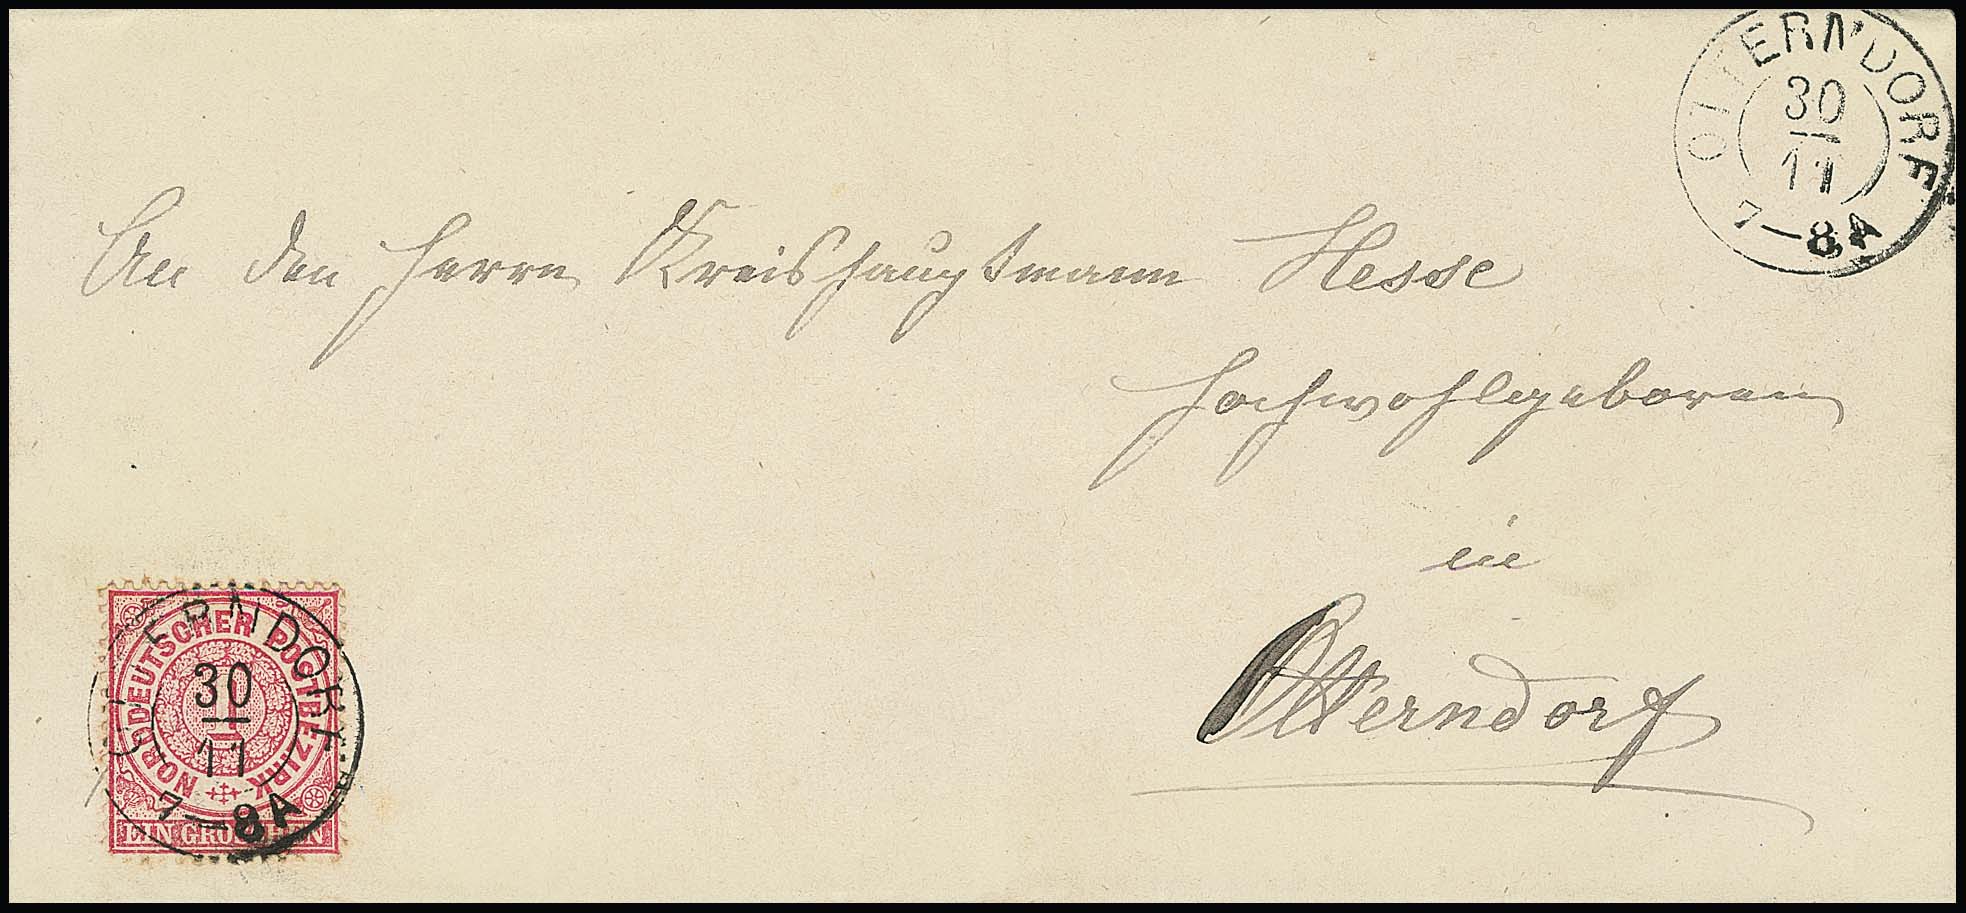 OTTERNDORF
30
11
7-8A
An den Herrn Kreishauptmann Hesse
Hochwohlgeboren
in
Otterndorf
NORDDEUTSCHER POSTBEZIRK
1
EIN GROSCHEN
OTTERNDORF
30
11
7-8A